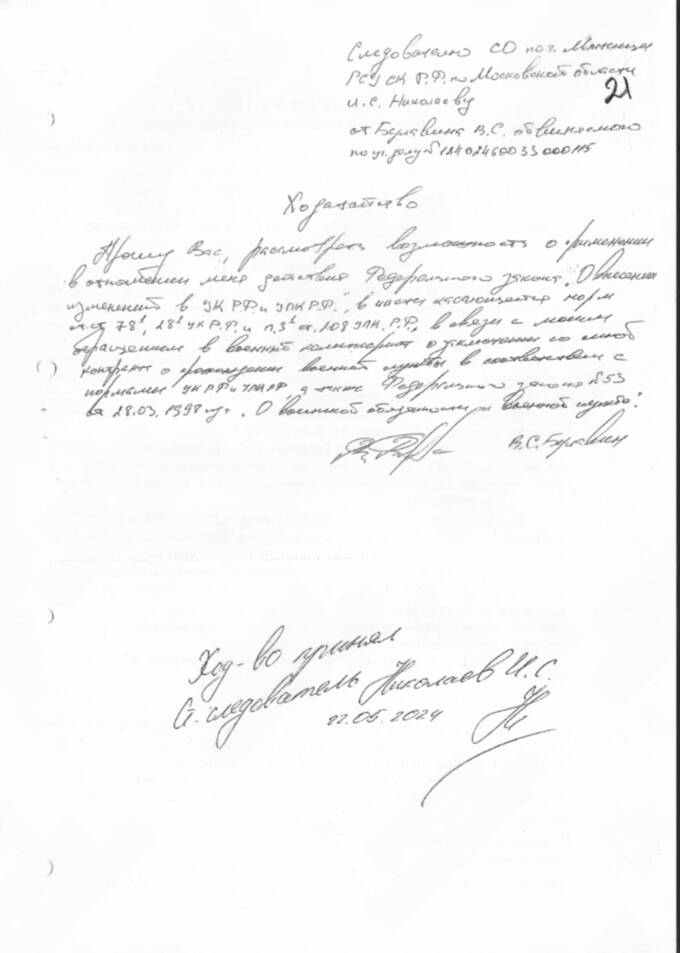 Следователю СО по г. Мытищи
ГСУ СК Р.Ф. по Московской области
И.С. Николаеву
21
от Буравина В.С. обвиняемого
по уг. делу №
Ходатайство
Прошу Вас, рассмотреть возможность о применении
в отношении меня действия Федерального закона "О внесении
изменений в УК Р.Ф. и УПК Р.Ф.", в части касающейся норм
ст.ст 78¹, 28¹ УК Р.Ф. и п.3¹ ст. 208 УПК. Р.Ф., в связи с моим
обращением в военный комиссариат о заключении со мной
контракта о прохождении военной службы в соответствии с
нормами УК РФ и УПК РФ, а также Федерального закона №53
от 28.03.1998 г. "О воинской обязанности и военной службе".
В.С.
Ход-во принял
Ст. следователь Николаев И.С.
22.05.2024